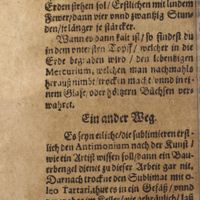 Erden stehen sol / Erstlichen mit lindem
Fewer / dann vier vnnd zwantzig Stun
den / je länger je stärcker.
Wann es dann kalt ist / so findest du
in dem vntersten Topff / welcher in die
Erde begraben wird / den lebendigen
Mercurium, welchen man nachmahls
heraus nimbt trocken macht vnnd in ei
nem Glase, oder höltzern Büchsen ver
wahret.
Ein ander Weg.
Es seyn etliche / die sublimieren erst
lich den Antimonium nach der Kunst /
wie ein Artist wissen soll / dann ein Bau
erbengel dienet zu dieser Arbeit gar nit.
Darnach trockne den Sublimat mit o-
leo Tartari, thue es in ein Gefäß / vnnd